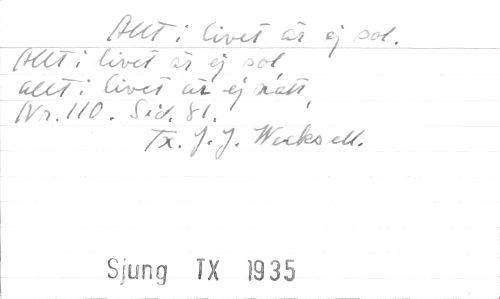 Allt i livet är ej sol.
Allt i livet är ej sol,
allt i livet är ej natt,
Nr. 110. Sid. 81.
Tx. J. J. Wecksell.
Sjung TX 1935